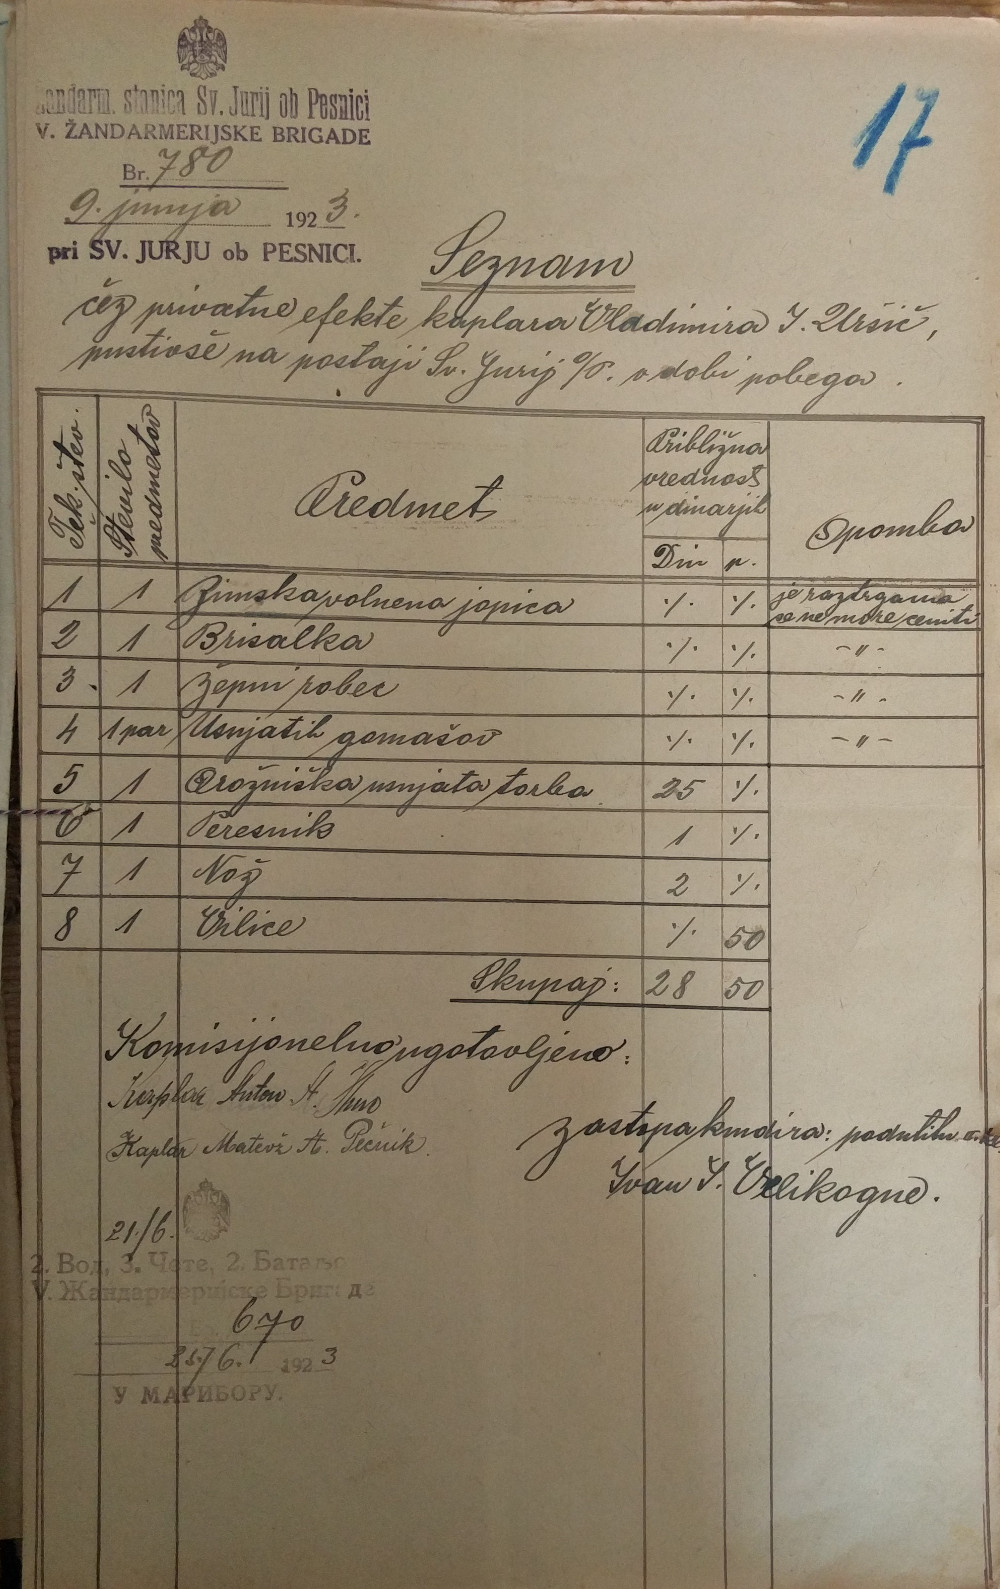 Žandarm. stanica Sv. Jurij ob Pesnici
V. ŽANDARMERIJSKE BRIGADE
Br. 780
9. junija 1923.
pri SV. JURJU ob PESNICI.
17
Seznam
čez privatne efekte kaplara Vladimira I. Uršič,
pustivše na postaji Sv. Jurij o/P. o dobi pobega.
Tek. štev. Število predmetov Predmet Približna vrednost v dinarjih Opomba
Din p.
1 1 Zimska volnena jopica ·/· ·/· je raztrgana
se ne more ceniti
2 1 Brisalka ·/· ·/· -"-
3. 1 Žepni robec ·/· ·/· -"-
4 1 par Usnjatih gamašov ·/· ·/· -"-
5 1 Orožniška usnjata torba 25 ·/·
6 1 Peresnik 1 ·/·
7 1 Nož 2 ·/·
8 1 Vilice ·/· 50
Skupaj: 28 50
Komisijonelno ugotovljeno:
Kaplar Anton A.
Kaplar Matevž A. Pečnik.
zastopa kmdira: podn
Ivan I. Velikogne.
21./6.
2. Вод, 3. Чете, 2. Батаљо
V. Жандармеријске Бригаде
670
1923
У МАРИБОРУ.